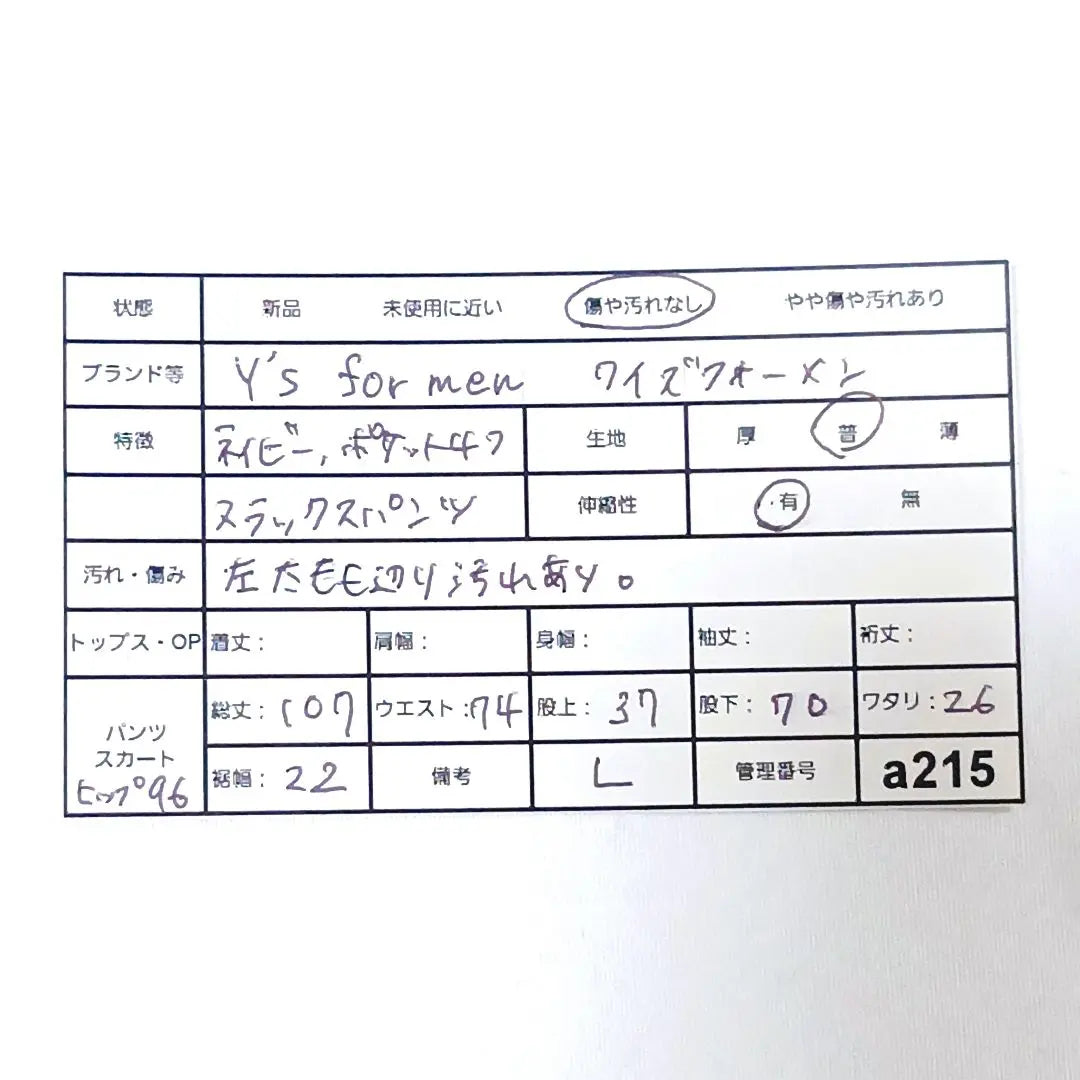 状態 新品 未使用に近い 傷や汚れなし やや傷や汚れあり
ブランド等 Y's for men ワイズフォーメン
特徴 ネイビー,ポケット4つ 生地 厚 普 薄
スラックスパンツ 伸縮性 ・有 無
汚れ・傷み 左太もも辺り汚れあり。
トップス・OP 着丈: 肩幅: 身幅: 袖丈: 裄丈:
パンツ スカート ヒップ96 総丈:107 ウエスト:74 股上:37 股下:70 ワタリ:26
裾幅:22 備考 L 管理番号 a215